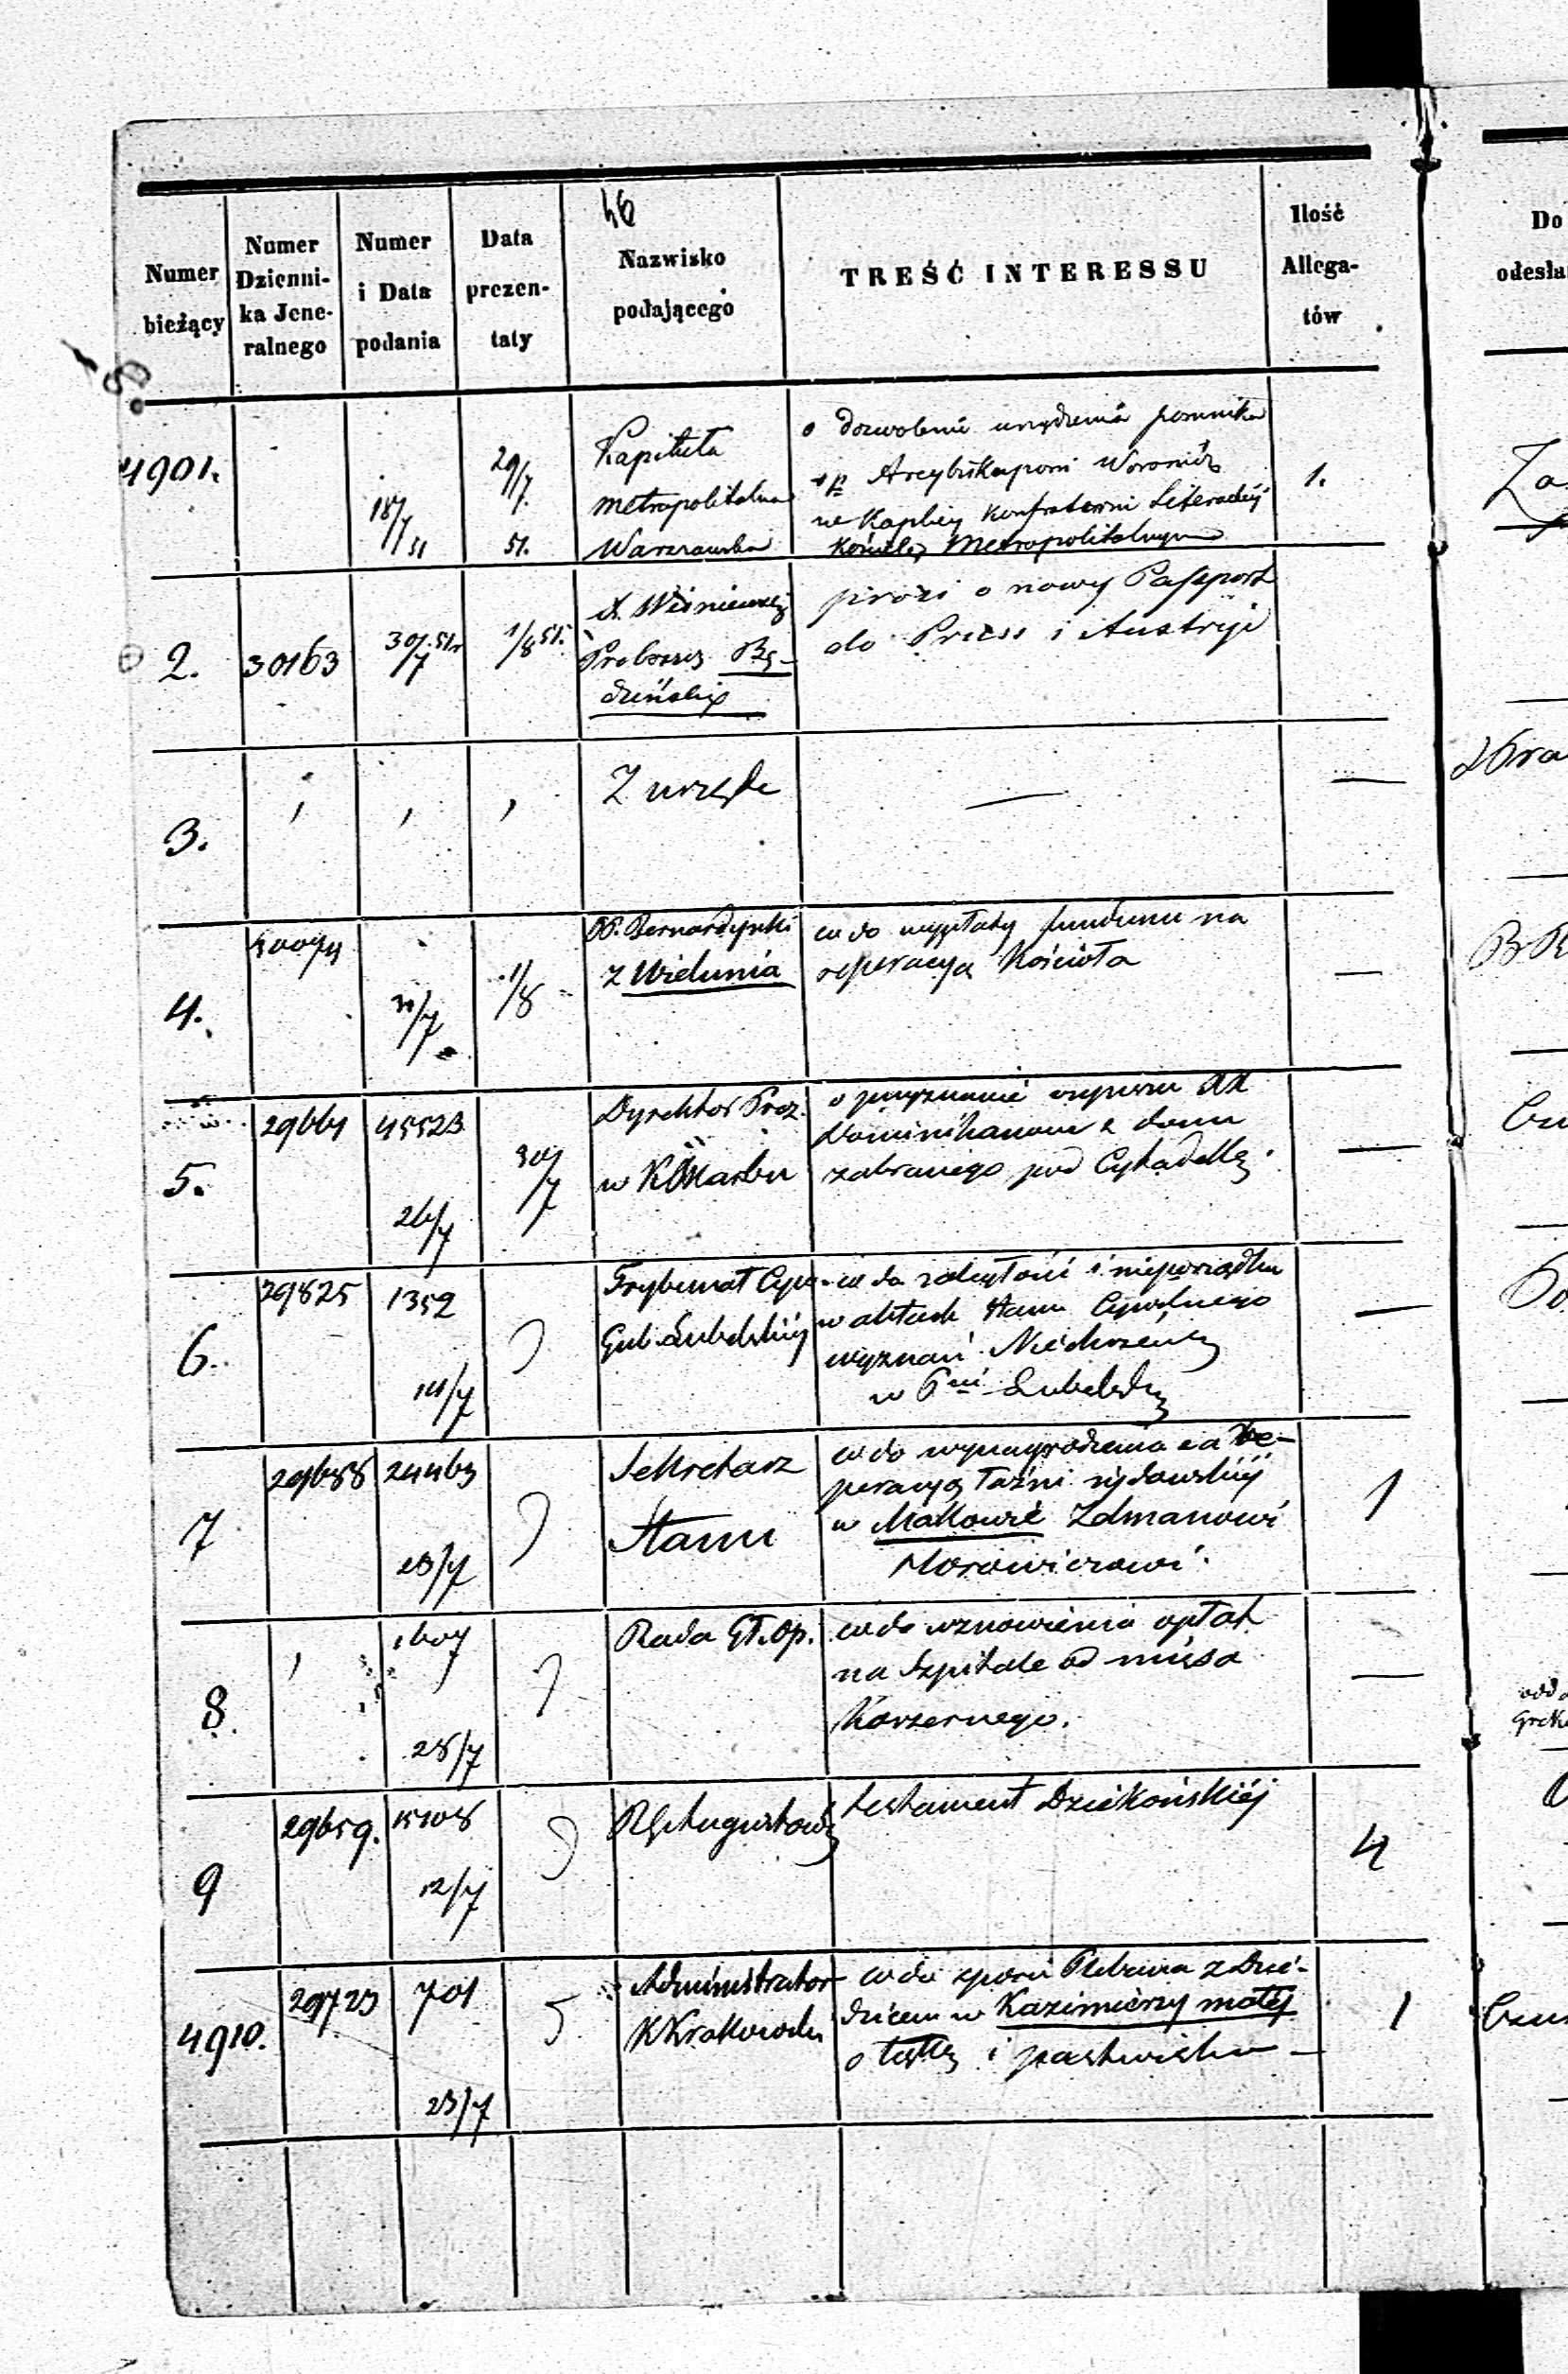 46
Numer bieżący
Numer Dzienni-ka Jene-ralnego
Numer i Data podania
Data prezen-taty
Nazwisko podającego
TREŚĆ INTERESSU
Ilość Allega-tów
Do
odesła
4901.
18/7 51
29/7 51.
Kapituła
metropolitalna
Warszawska
o dozwolenie urządzenia pomnika
śp Arcybiskupowi Woronicz
we Kaplicy Konfraterni Literackiéj
Kościoła Metropolitalnym
1.
Za
2.
30163
30/7 51r
1/8 51.
X. Wiśniewski
Proboszcz Bę-
dziński
prosi o nowy Passport
do Pruss i Austryi
3.
Z urzędu
—
—
4.
30074
31/7
1/8
PP. Bernardynki
z Wielunia
co do wypłaty funduszu na
reperacyą Kościoła
—
5.
29661
45523
26/7
30/7
Dyrektor Prez.
w KSkarbu
o przyznanie czynszu XX
Dominikanom z domu
zabranego pod Cytadellę.
—
6.
29825
1352
14/7
Trybunał Cyw.
Gub. Lubelskiéj
co do zaległości i nieporządku
w aktach Stanu Cywilnego
wyznań Niechrześć
w Gnii Lubelskiéj
—
7
29688
24463
23/7
Sekretarz
Stanu
co do wynagrodzenia za re-
peracyą łaźni żydowskiéj
w Makowie Zelmanowi
Morowiczowi.
1
8.
1607
28/7
Rada Gł. Op.
co do wznowienia opłat
na Szpitale od mięsa
Koszernego.
—
9
29659.
15108
12/7
RG Augustows
testament Dziekońskiéj
4
4910.
29723
701
23/7
Administrator
KKrakowski
co do sporu Plebana z Dzie-
dzicem w Kazimierzy małéj
o łąkę i pastwisko —
1